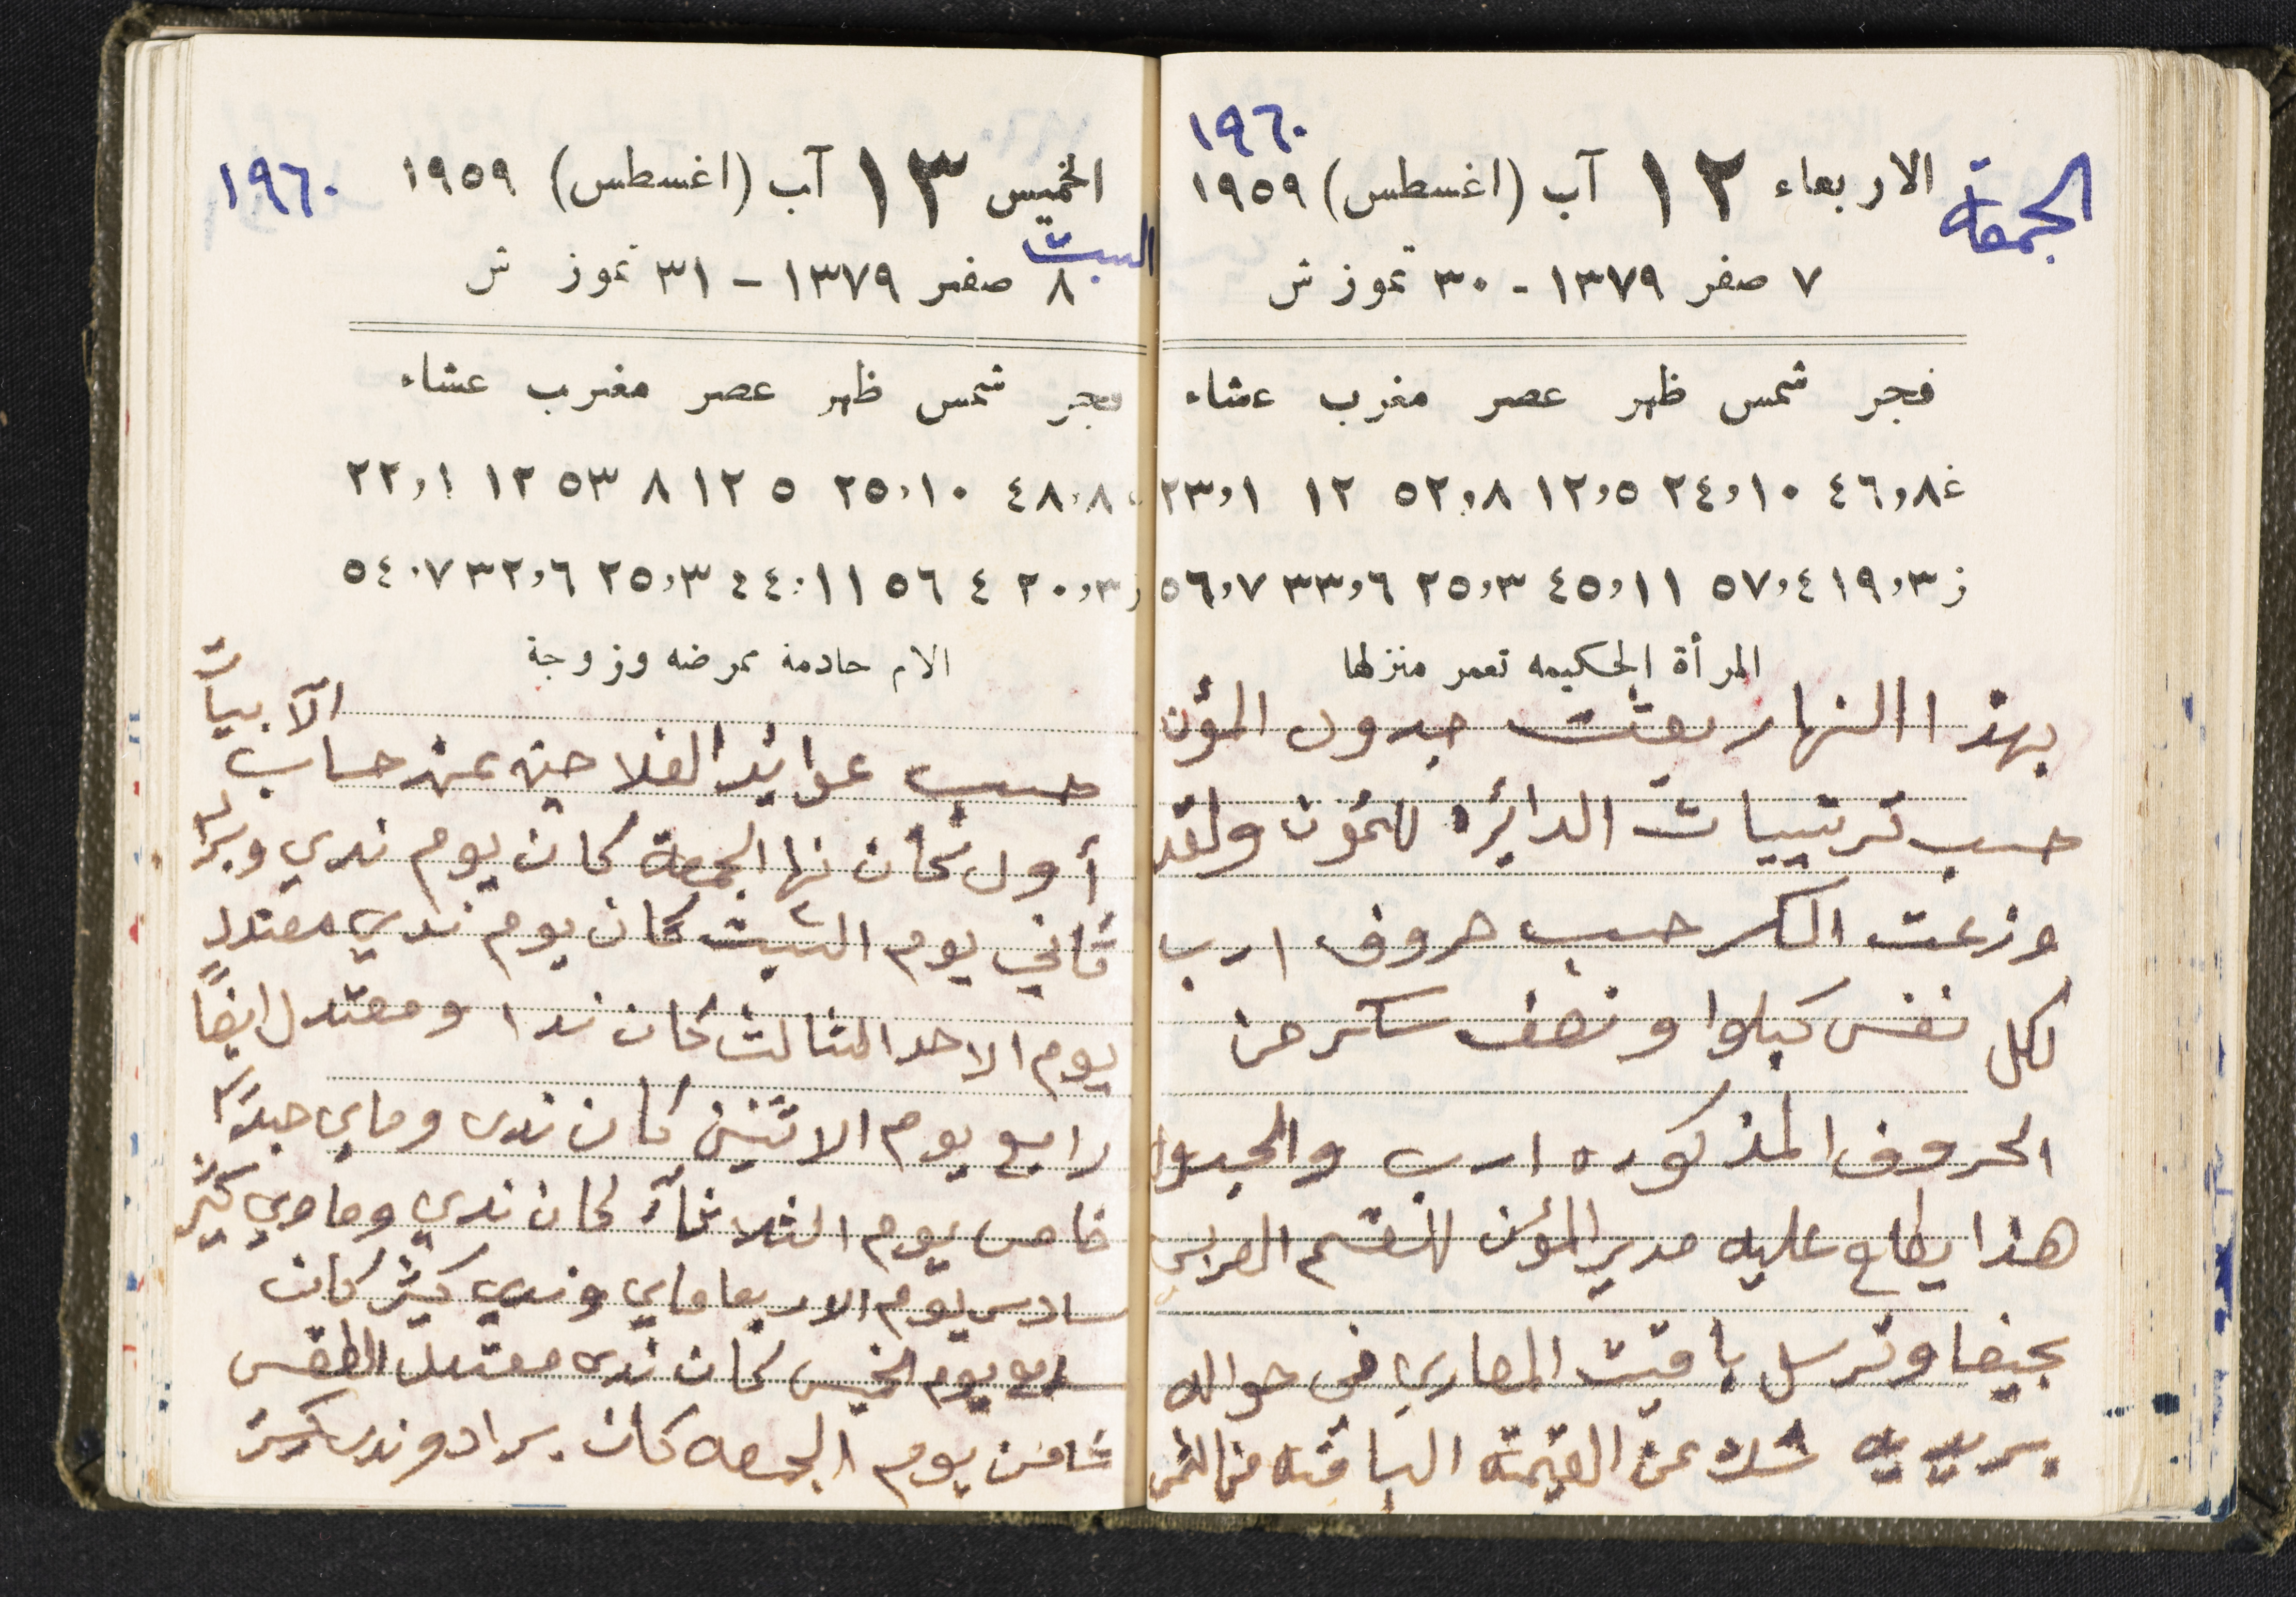 ١٩٦٠
الجمعة
الاربعاء ١٢ آب (اغسطس) ١٩٥٩
٧ صفر ١٣٧٩ - ٣٠ تموز ش
فجر شمس ظهر عصر مغرب عشاء
غ ٤٦,٨ ٢٤,١٠ ١٢,٥ ٥٢,٨ ١٢ ٢٣,١
ز ١٩,٣ ٥٧,٤ ٤٥,١١ ٢٥,٣ ٣٣,٦ ٥٦,٧
المرأة الحكيمه تعمر منزلها
بهذا النهار بعثت جدول المؤن
حسب ترتيبات الدائره للمؤن ولقد
وزعت السكر حسب حروف ا ر ب
لكل نفس كيلوا ونصف سكر من
الحروف المذكوره ا ر ب والجدول
هذا يطلع عليه مدير المؤن للقسم العربي
بحيفا وترسل باقيت المصاري في حواله
بريديه شك عن القيمته الباقيه من الثمن
الخميس ١٣ آب (اغسطس) ١٩٥٩
١٩٦٠
السبت
٨ صفر ١٣٧٩ - ٣١ تموز ش
فجر شمس ظهر عصر مغرب عشاء
٤٨,٨ ٢٥,١٠ ١٢ ٥ ٥٣ ٨ ١٢ ٢٢,١
ز ٢٠,٣ ٥٦ ٤ ٤٤,١١ ٢٥,٣ ٣٢,٦ ٥٤,٧
الام خادمة ممرضه وزوجة
حسب عوايد الفلاحين عن حساب
أول كان نها الجمعة كان يوم ندي وبراد
ثاني يوم السبت كان يوم ندي معتدل
يوم الاحد الثالث كان ندا ومعتدل ايضاً
رابع يوم الاثنين كان ندى وماي
خامس يوم الثلاثاء كان ندي وماوي كثير
سادس يوم الاربعا ماي وندي كثير كان
يوم الخميس كان ندى معتدل الطقس
ثامن يوم الجمعه كان براد وندى كثير